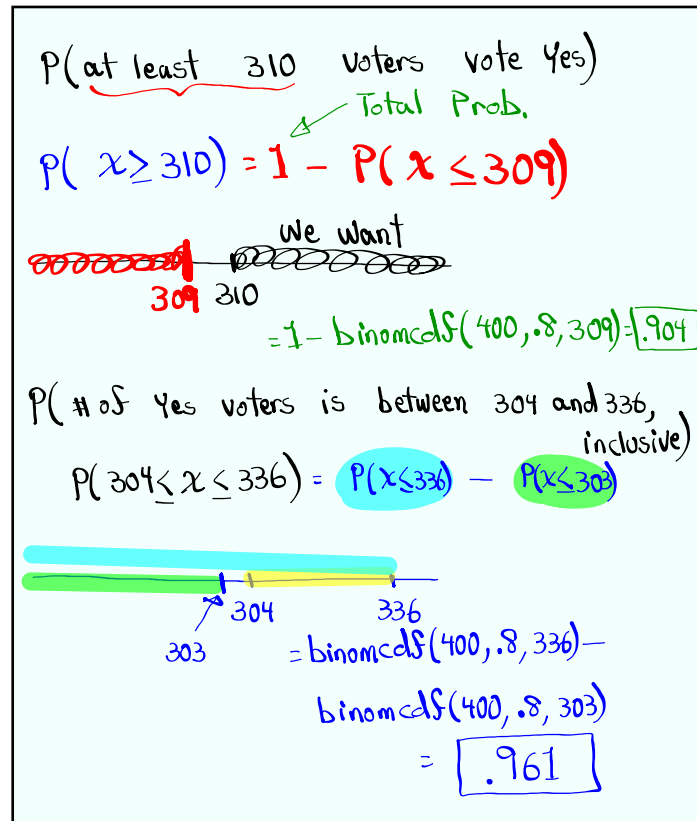 P(at least 310 voters vote Yes)
Total Prob.
P( x ≥ 310) = 1 - P( x ≤ 309)
We want
309 310
= 1 - binomcdf(400, .8, 309) = .904
P( # of Yes voters is between 304 and 336,
inclusive)
P(304 ≤ x ≤ 336) = P(x ≤ 336) - P(x ≤ 303)
304 336
303
= binomcdf(400, .8, 336) -
binomcdf(400, .8, 303)
= .961